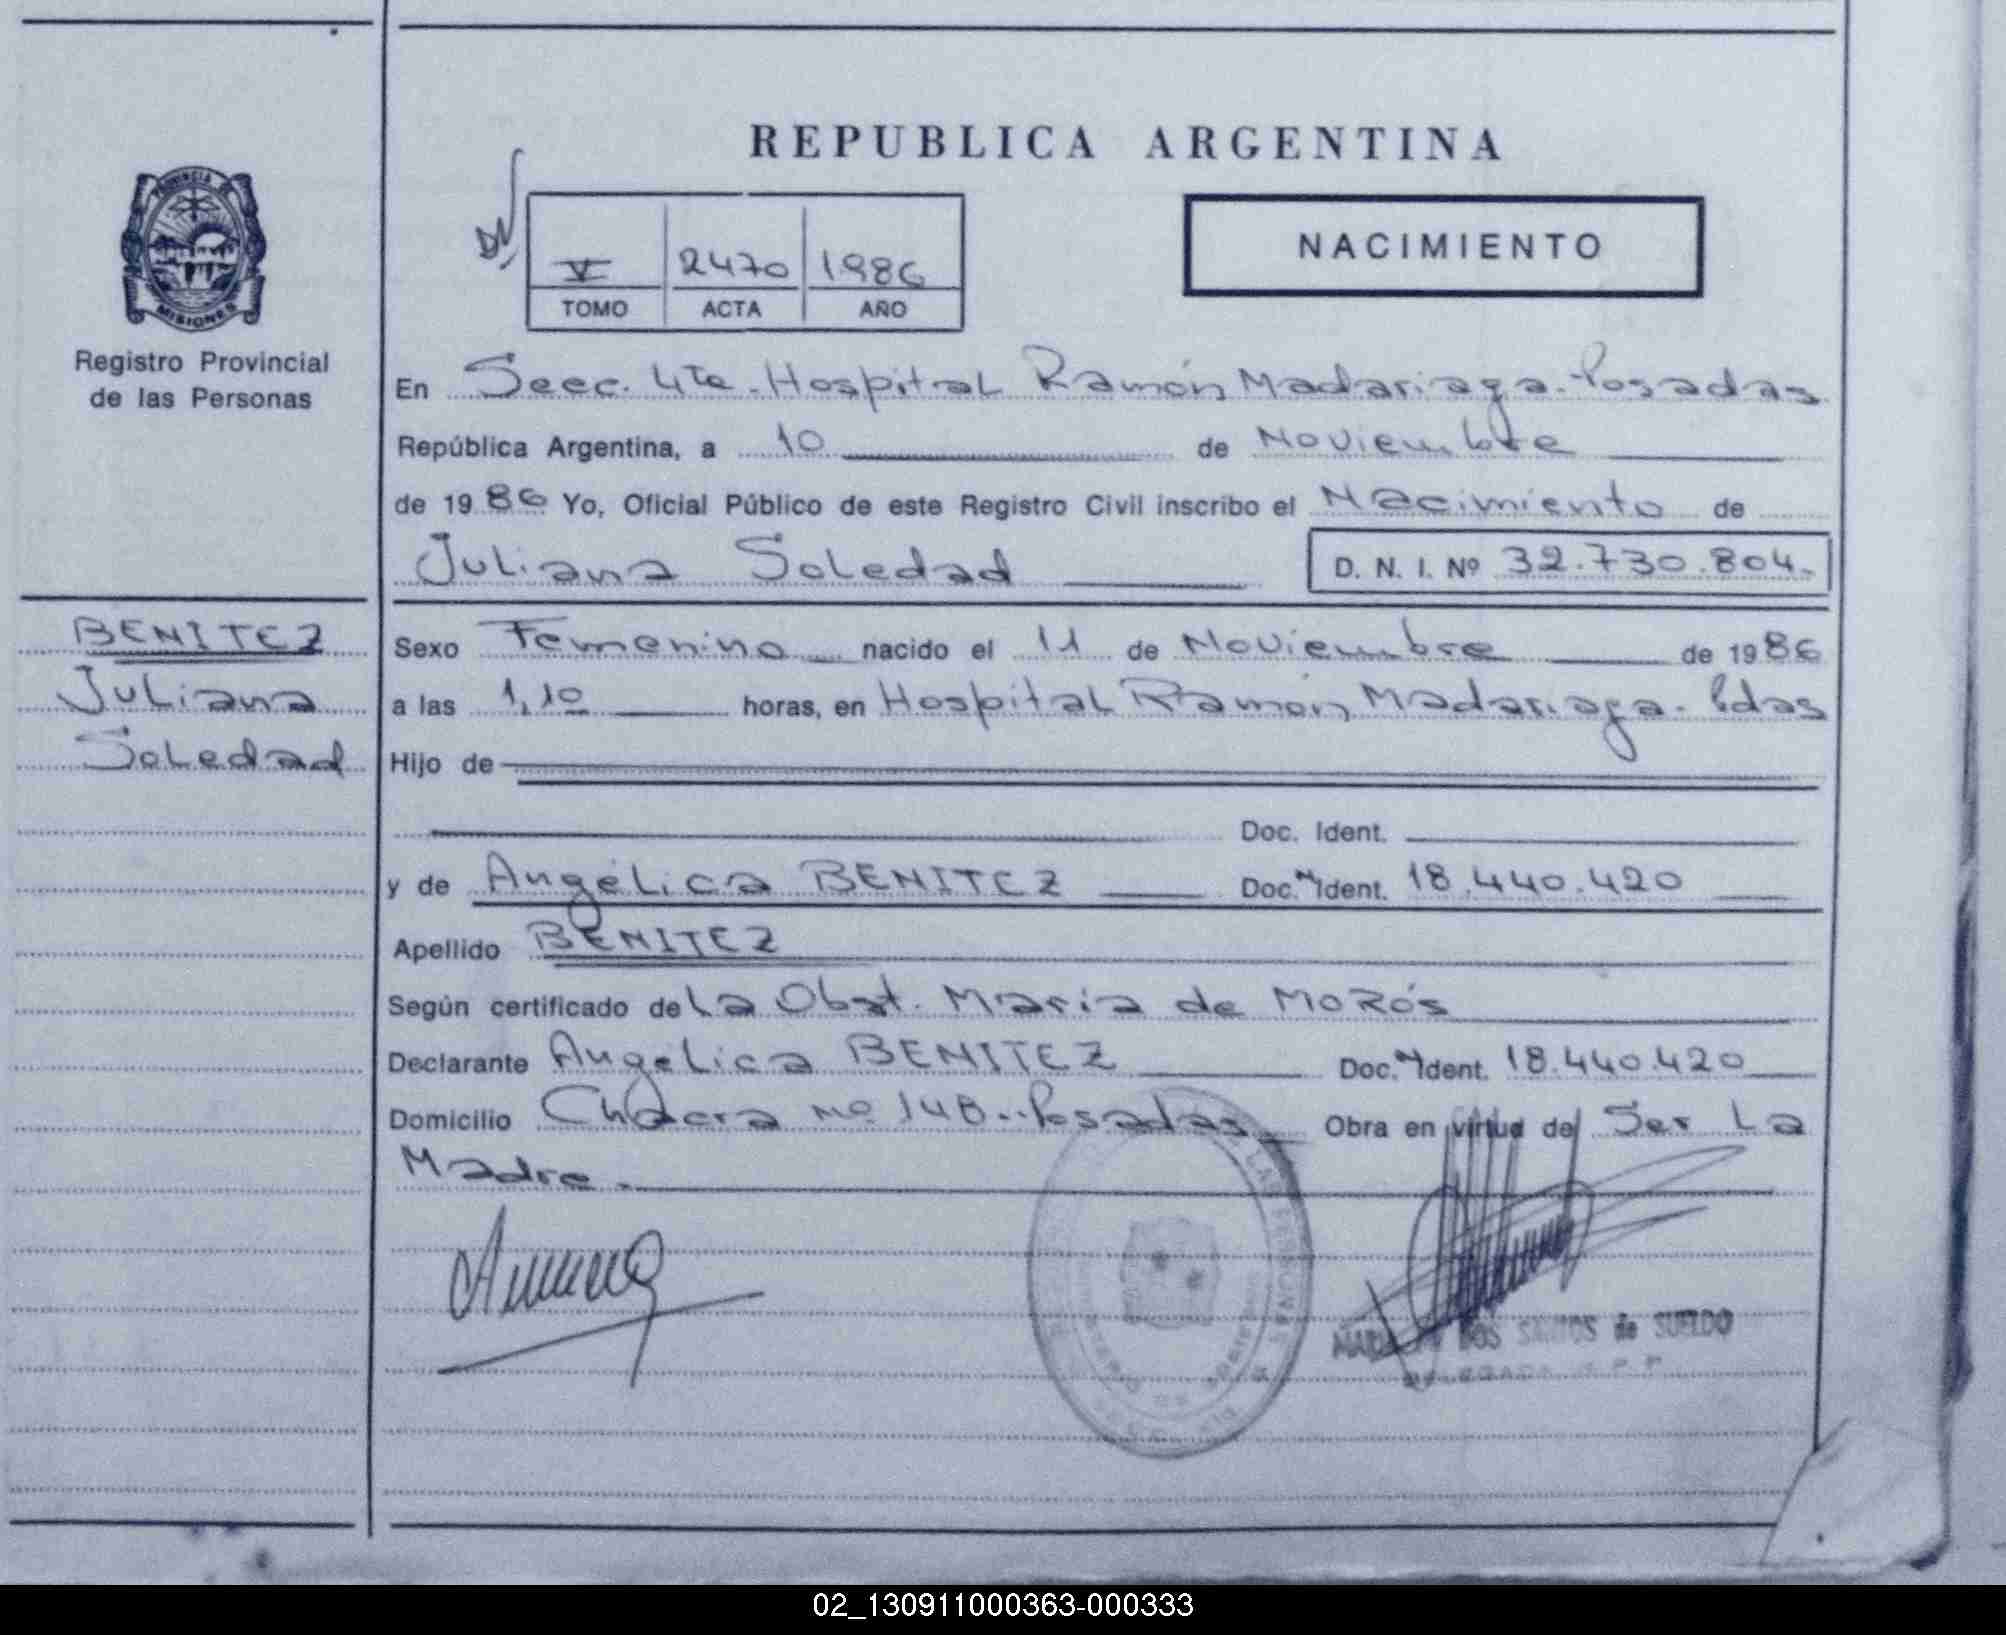 REPUBLICA ARGENTINA
PROVINCIA DE
MISIONES
Registro Provincial
de las Personas
V 2470 1986
TOMO ACTA AÑO
NACIMIENTO
En Secc. 4ta. Hospital Ramón Madariaga. Posadas
República Argentina, a 10 de Noviembre
de 1986 Yo, Oficial Público de este Registro Civil inscribo el Nacimiento de
Juliana Soledad D. N. I. Nº 32.730.804.
BENITEZ
Juliana
Soledad
Sexo Femenino nacido el 11 de Noviembre de 1986
a las 1,10 horas, en Hospital Ramón Madariaga. Pdas
Hijo de
Doc. Ident.
y de Angélica BENITEZ Doc. Ident. 18.440.420
Apellido BENITEZ
Según certificado de La Obst. María de Morós
Declarante Angélica BENITEZ Doc. Ident. 18.440.420
Domicilio Chacra Nº 148.. Posadas Obra en virtud de Ser La
Madre.
DOS SANTOS de SUELDO
DELEGADA R.P.P.
02_130911000363-000333